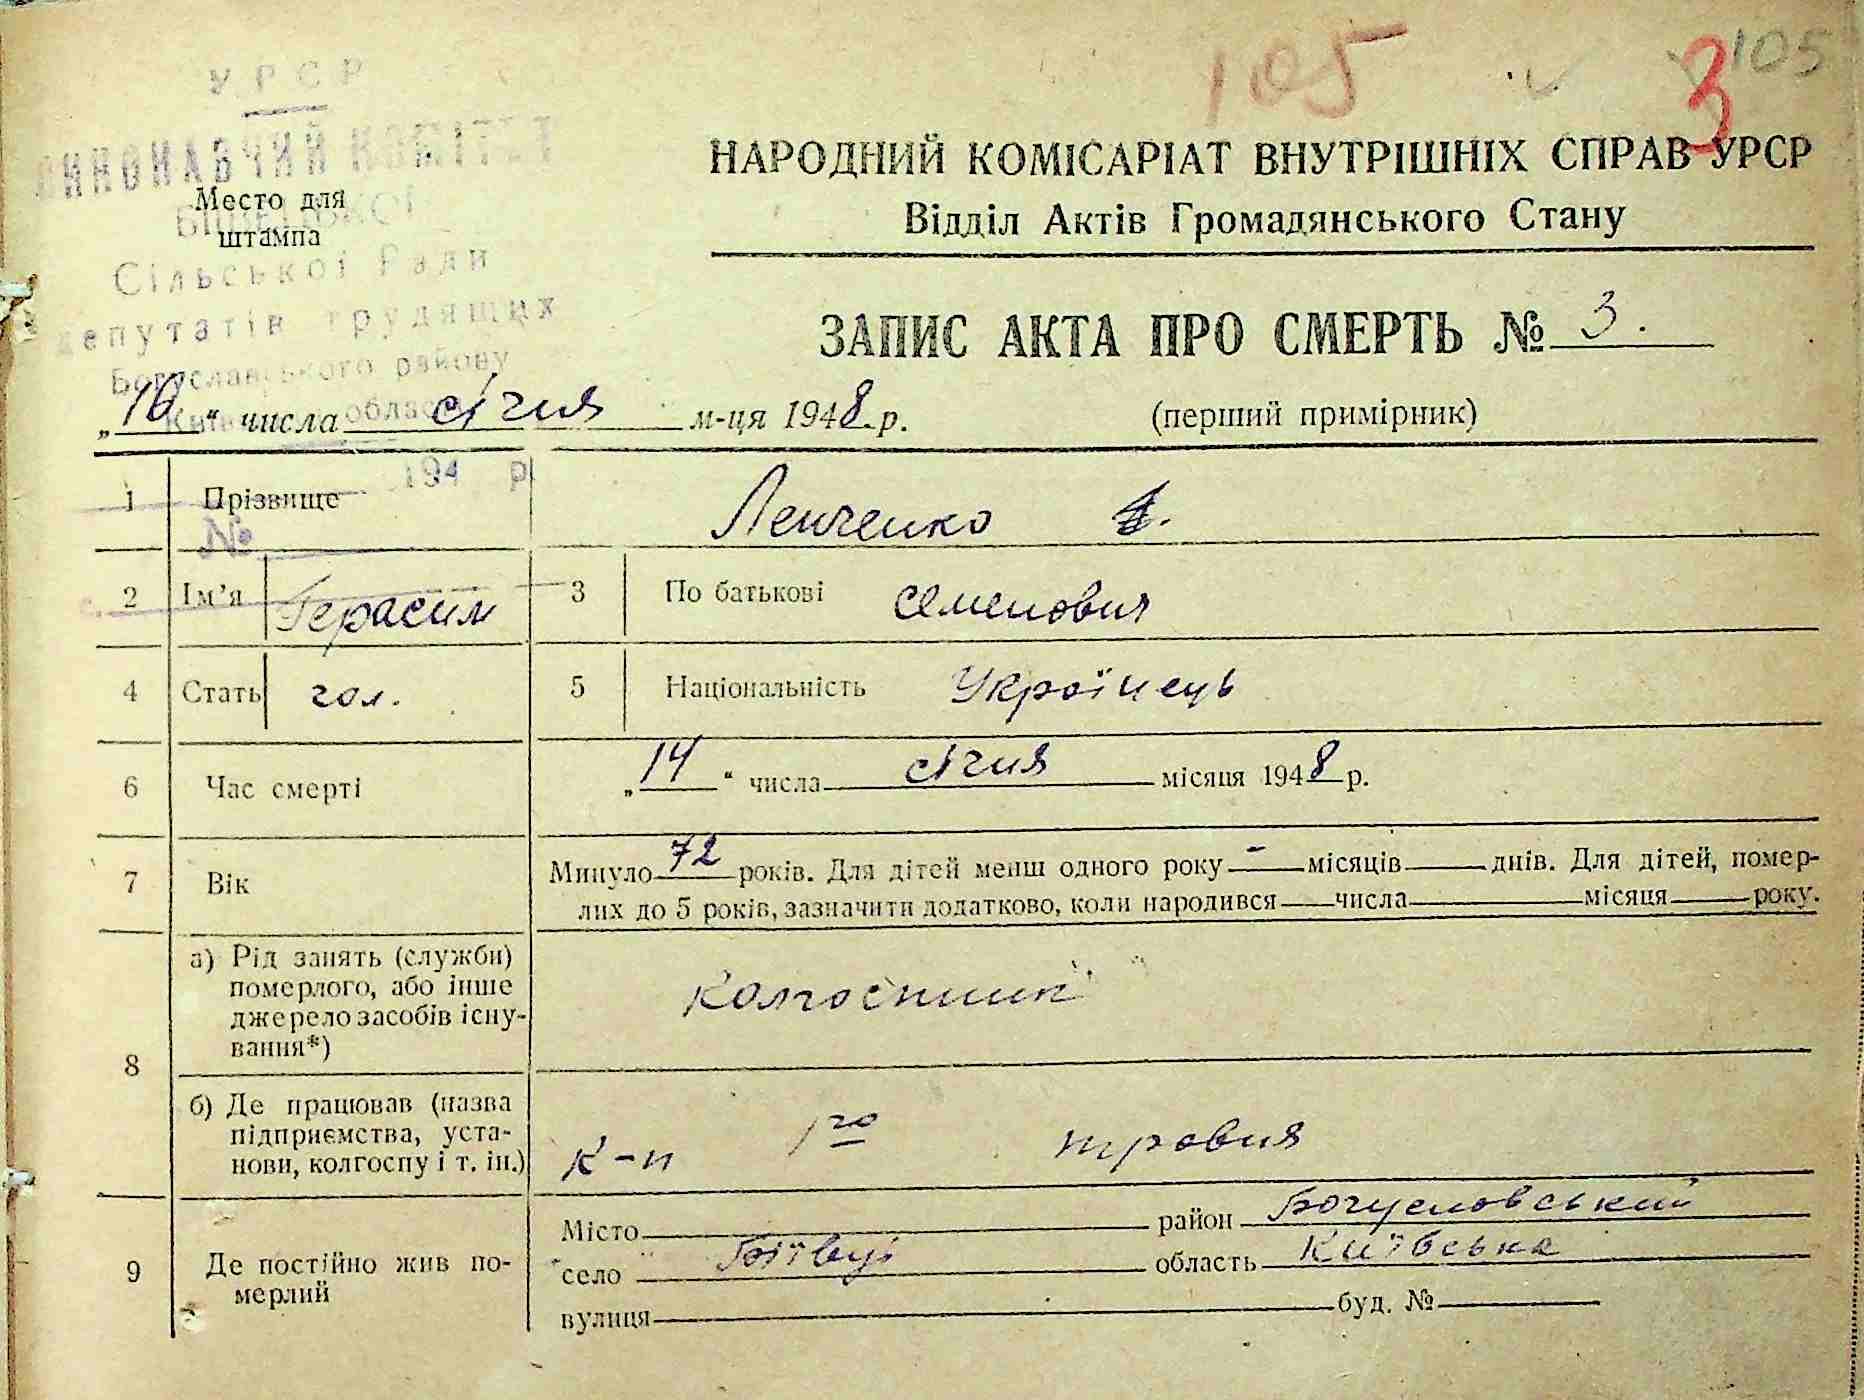 105
3 105
УРСР
ВИКОНАВЧИЙ КОМІТЕТ
Место для
штампа
Сільської Ради
депутатів трудящих
Богуславського району
області
194 р
№
НАРОДНИЙ КОМІСАРІАТ ВНУТРІШНІХ СПРАВ УРСР
Відділ Актів Громадянського Стану
ЗАПИС АКТА ПРО СМЕРТЬ № 3.
„16“ числа січня м-ця 1948 р.
(перший примірник)
1 Прізвище Ленченко
2 Ім’я Герасим 3 По батькові Семенович
4 Стать чол. 5 Національність Українець
6 Час смерті „14“ числа січня місяця 1948 р.
7 Вік Минуло 72 років. Для дітей менш одного року - місяців днів. Для дітей, помер-
лих до 5 років, зазначити додатково, коли народився числа місяця року.
8 а) Рід занять (служби)
померлого, або інше
джерело засобів існу-
вання*)
Колгоспник
б) Де працював (назва
підприємства, уста-
нови, колгоспу і т. ін.)
к-п 1го травня
9 Де постійно жив по-
мерлий
Місто район Богуславський
село Біївці область Київська
вулиця буд. №